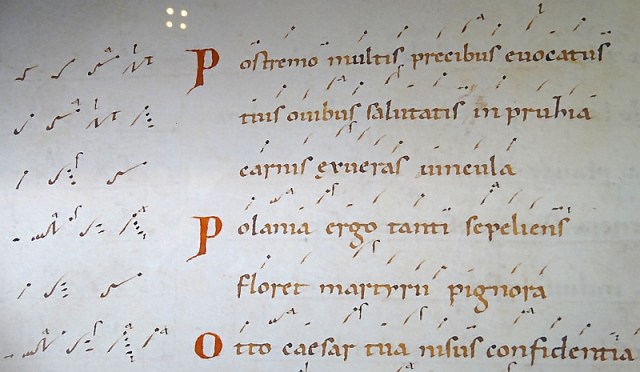 Postremo multis precibus evocatus
tius ovibus salutatis in pruhia
carnis exueras vincula
Polania ergo tanti sepeliens
floret martyrii pignora
Otto caesar tua nisus confidentia